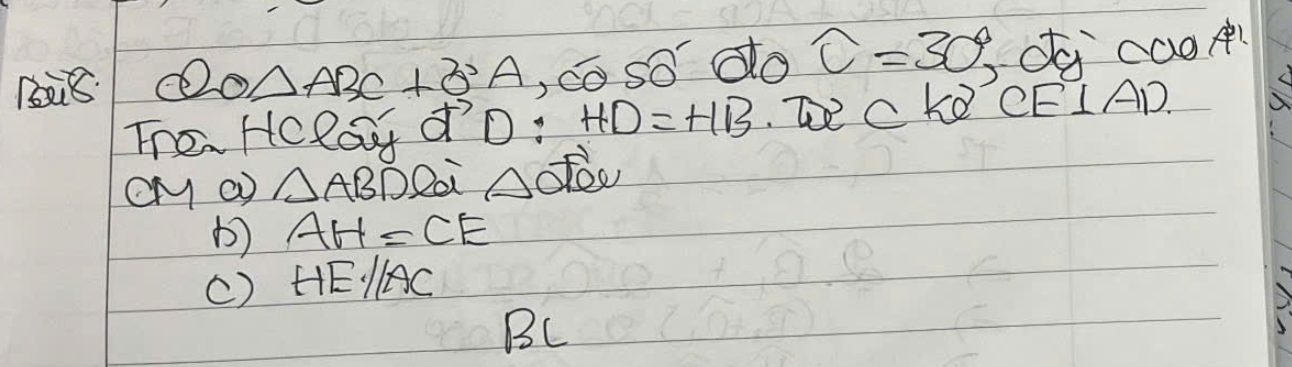 Bài 8: Cho △ABC + ở A, có số đo Ĉ = 30°, đg cao AH.
Trên HC lấy đ' D: HD = HB. Từ C kẻ CE ⊥ AD.
CM a) △ABD là △đều
b) AH = CE
c) HE // AC
BL